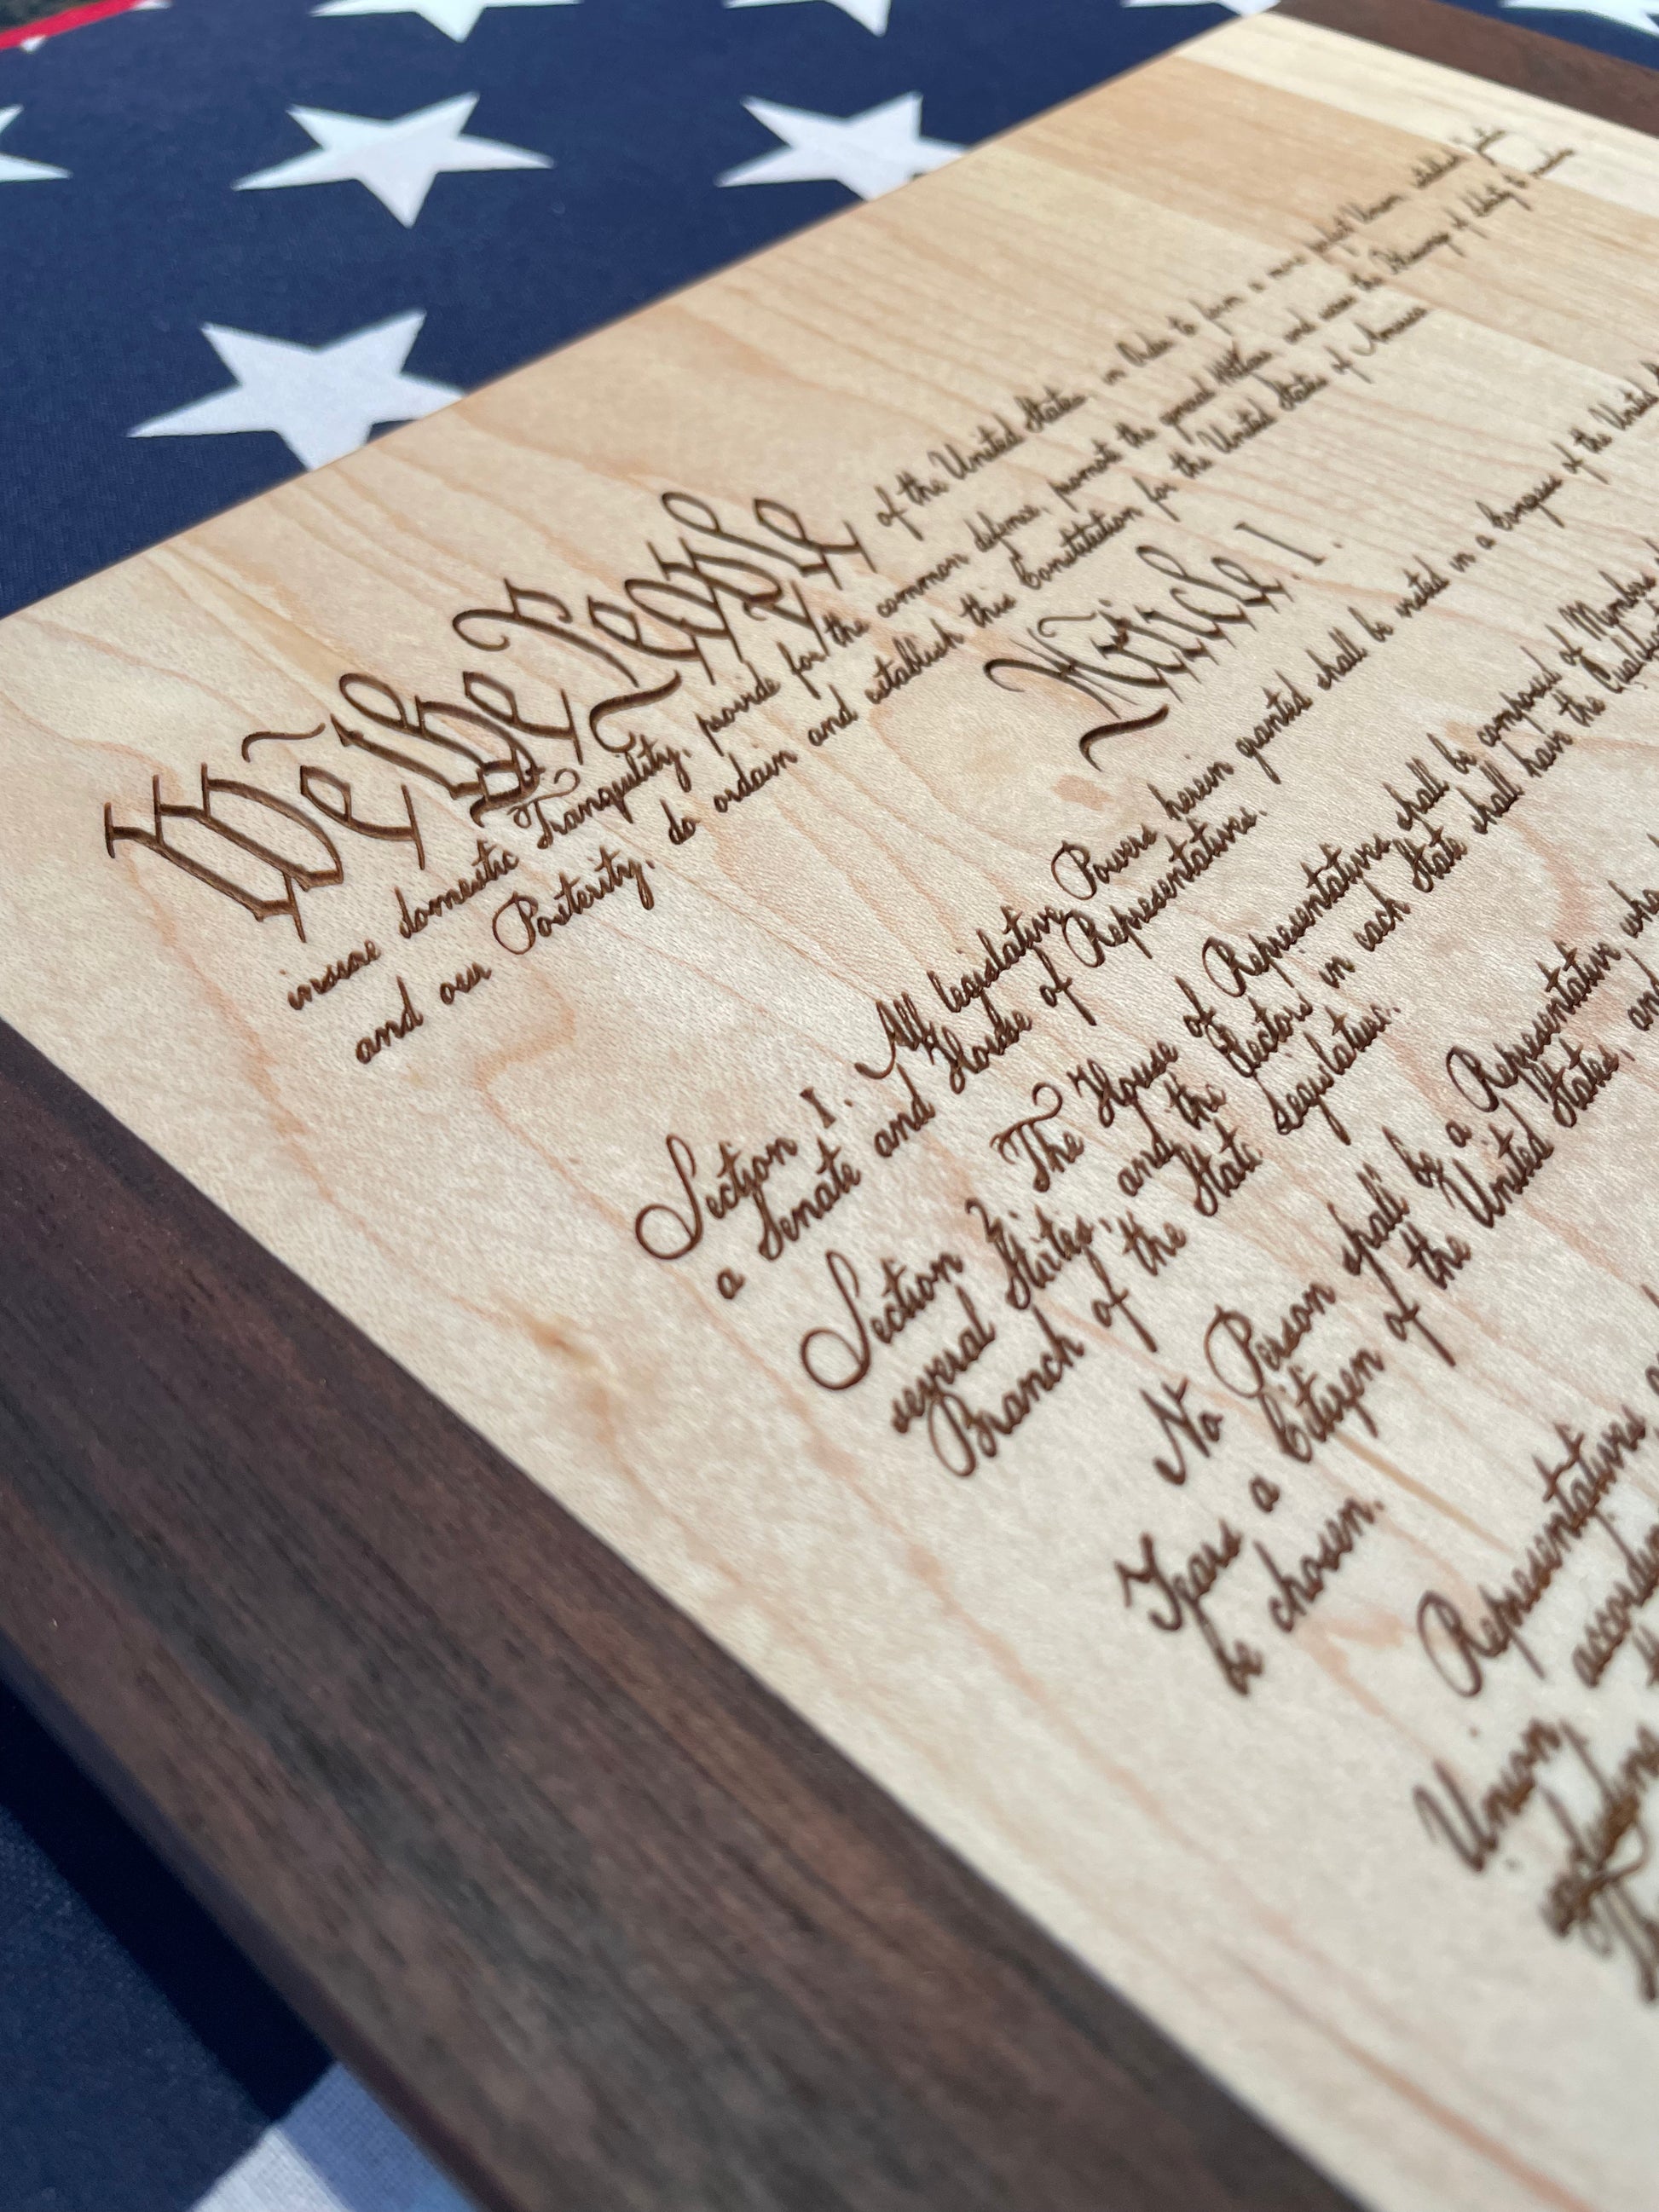 We the People of the United States, in Order to form a more perfect Union, establish Justice
insure domestic Tranquility, provide for the common defence, promote the general Welfare, and secure the Blessings of Liberty to ourselves
and our Posterity, do ordain and establish this Constitution for the United States of America
Article I.
Section 1. All legislative Powers herein granted shall be vested in a Congress of the United
a Senate and House of Representatives.
Section 2. The House of Representatives shall be composed of Members
several States, and the Electors in each State shall have the
Branch of the State Legislature.
No Person shall be a Representative who
Years a Citizen of the United States, and
be chosen.
Representatives
Union